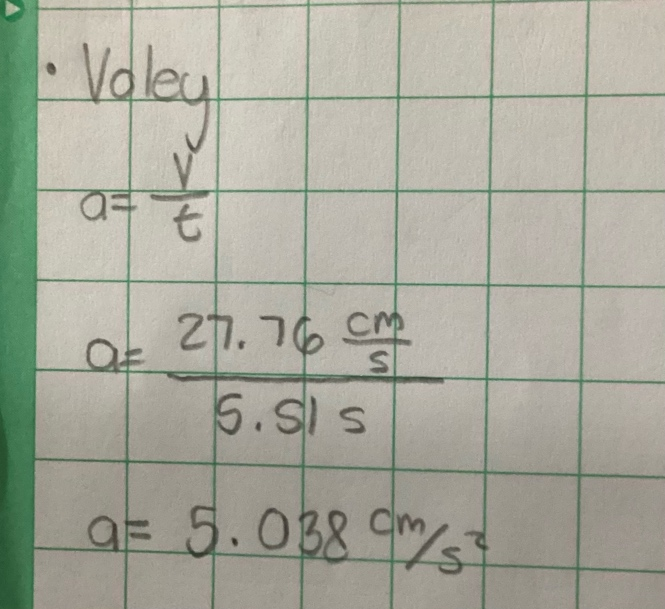 • Voley
a= V/t
a= 27.76 cm/s / 5.51 s
a= 5.038 cm/s²